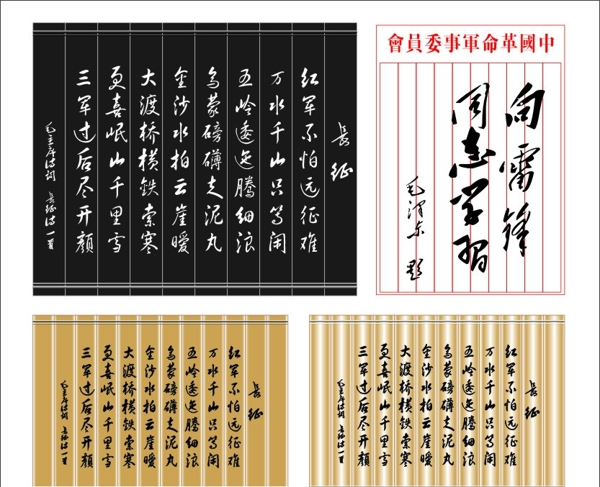 长征
红军不怕远征难
万水千山只等闲
五岭逶迤腾细浪
乌蒙磅礴走泥丸
金沙水拍云崖暖
大渡桥横铁索寒
更喜岷山千里雪
三军过后尽开颜
毛主席诗词 长征诗一首
中國革命軍事委員會
向雷锋
同志学習
毛泽东 题
长征
红军不怕远征难
万水千山只等闲
五岭逶迤腾细浪
乌蒙磅礴走泥丸
金沙水拍云崖暖
大渡桥横铁索寒
更喜岷山千里雪
三军过后尽开颜
毛主席诗词 长征诗一首
长征
红军不怕远征难
万水千山只等闲
五岭逶迤腾细浪
乌蒙磅礴走泥丸
金沙水拍云崖暖
大渡桥横铁索寒
更喜岷山千里雪
三军过后尽开颜
毛主席诗词 长征诗一首